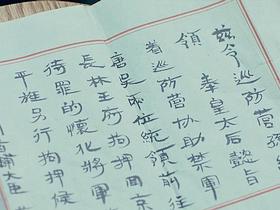 茲令巡防營
領 奉皇太后懿旨
着巡防營協助禁軍
唐吳兩位統領前往
長林王府拘押回京
待罪的懷化將軍
平旌另行拘押候
首輔大臣